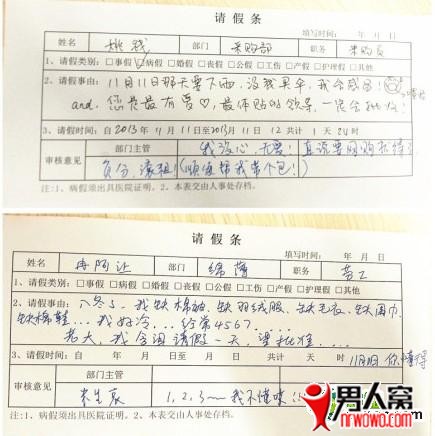 请假条
填写时间: 年 月 日
姓名 姚钱 部门 采购部 职务 采购员
1、请假类别: □事假 □病假 □婚假 □丧假 □公假 □工伤 □产假 □护理假 □其他
2、请假事由: 11月11日那天要下雨,没我具伞,我会感冒!
and. 您是最有爱♡,最体贴的领导,一定会批的!
3、请假时间: 自2013年11月11日至2013年11月12 共计 1 天 24时
审核意见 部门主管 我没心,无爱! 直说要网购
负分,滚粗!(顺便帮我带个包!)
注:1、病假须出具医院证明。2、本表交由人事处存档。
请假条
填写时间: 年 月 日
姓名 冉阿让 部门 职务 员工
1、请假类别: □事假 □病假 □婚假 □丧假 □公假 □工伤 □产假 □护理假 □其他
2、请假事由: 入冬了,我缺棉袖、缺羽绒服、缺毛衣、缺围巾
缺棉鞋...我好冷...经常4567......
老大,我会闭请假一天,望批准....
3、请假时间: 自 年 月 日至 年 月 日共计 天 时 11月11日 你懂得
审核意见 部门主管
1,2,3~我不懂哦!
注:1、病假须出具医院证明。2、本表交由人事处存档。
男人窝
nrwowo.com